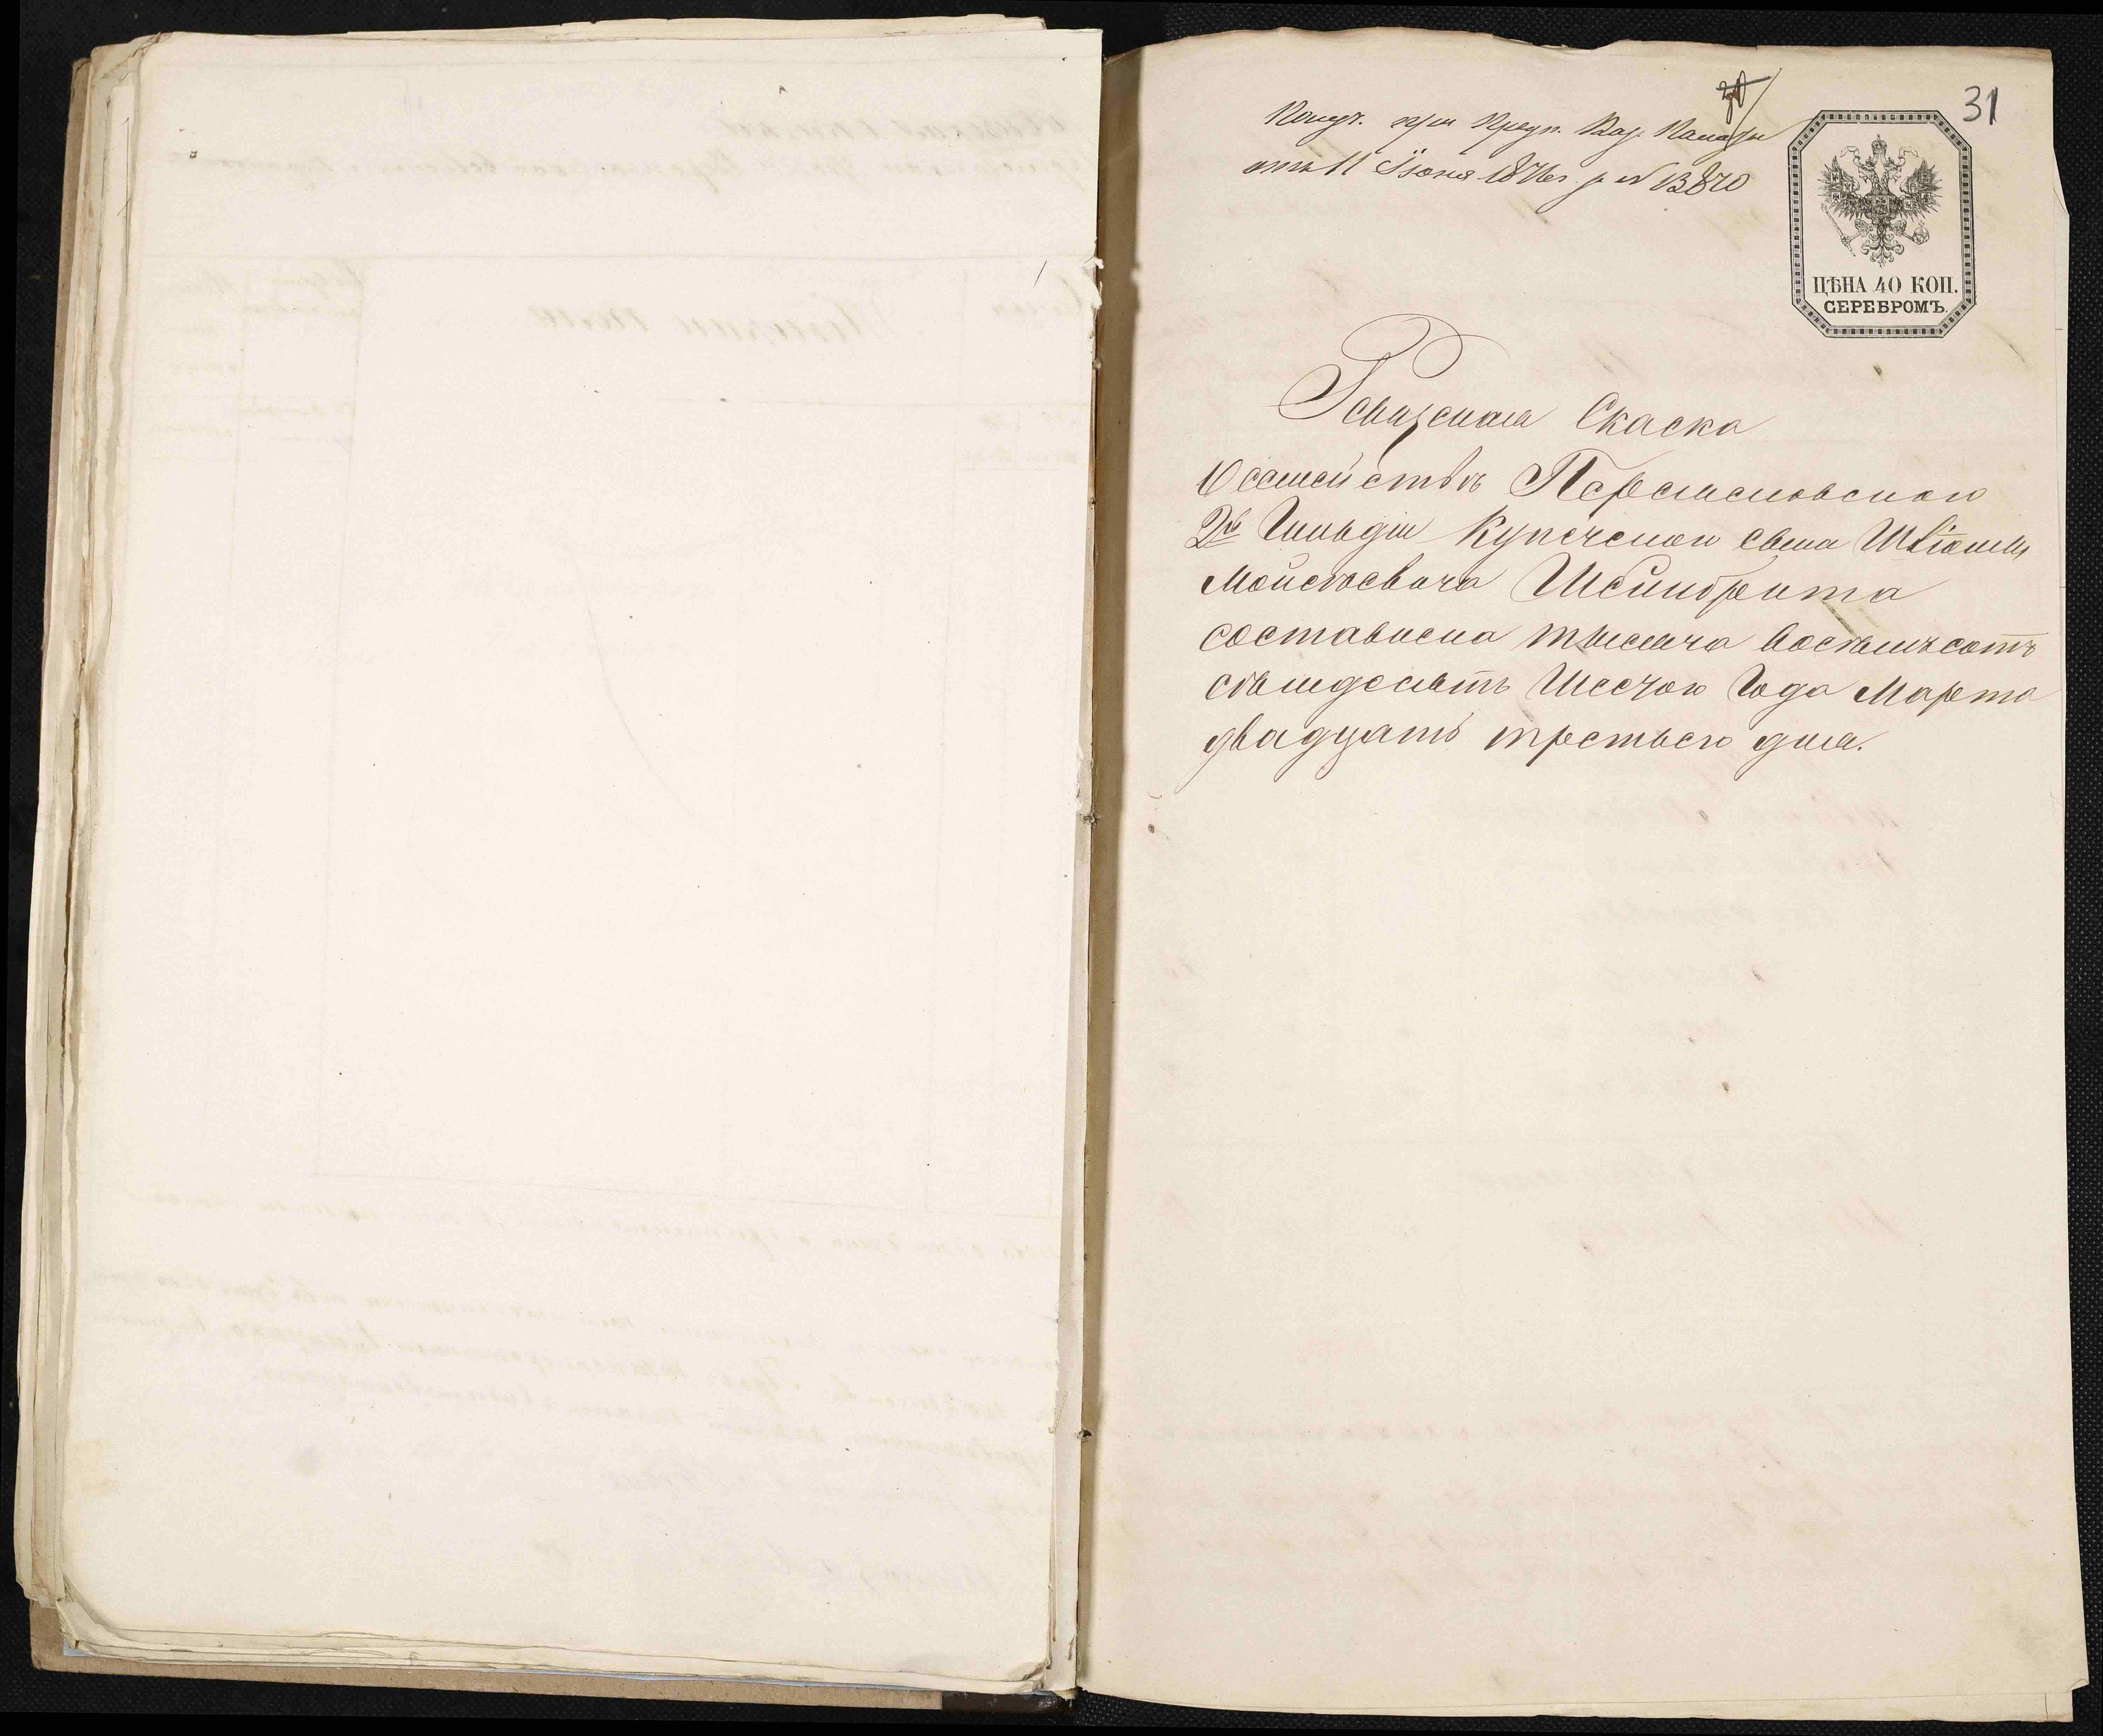 30
31
Получ. при Предп. Каз. Палаты
отъ 11 Іюня 1876 г. за N 13870
ЦѢНА 40 КОП.
СЕРЕБРОМЪ.
Ревизская Скаска
О семействѣ Переясловскаго
2й Гильдіи Купеческаго сына
Мойсѣевича Шейнбрейта
составлена тысяча восѣмъсотъ
сѣмдесятъ Шесчого Года Марта
двадцать третьего дня.